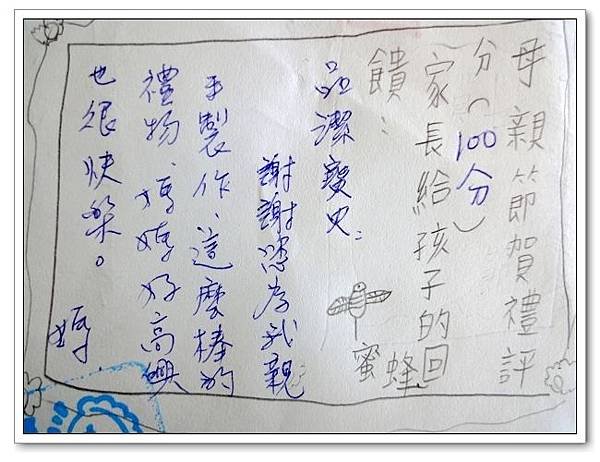 母親節賀禮評
分(100分)
家長給孩子的回
饋:
蜜蜂
品潔寶貝:
謝謝您為我親
手製作、這麼棒的
禮物、媽媽好高興
也很快樂。
媽